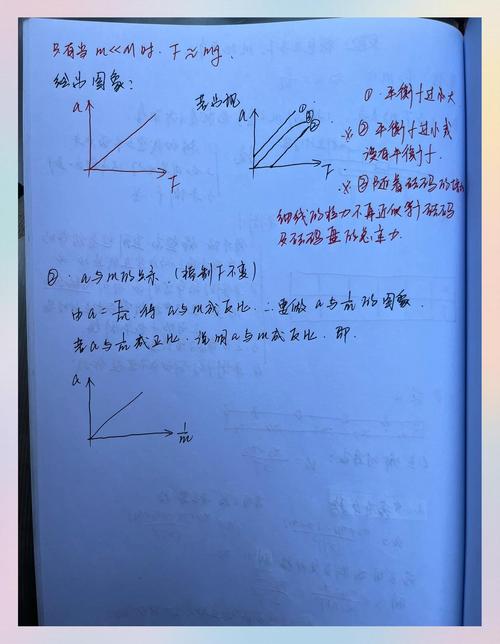 只有当 m≪M 时. F≈mg.
绘出图象:
a
F
若出现
a
①
②
③
F
① 平衡f过大
※ ② 平衡f过小或
没有平衡f.
※ ③ 随着砝码的
细线的拉力不再近似等于砝码
及砝码盘的总重力.
② . a与m的关系. (控制F不变)
由a=F/m. 得 a与m成反比. ∴要做 a与1/m的图象.
若a与1/m成正比. 说明a与m成反比. 即.
a
1/m